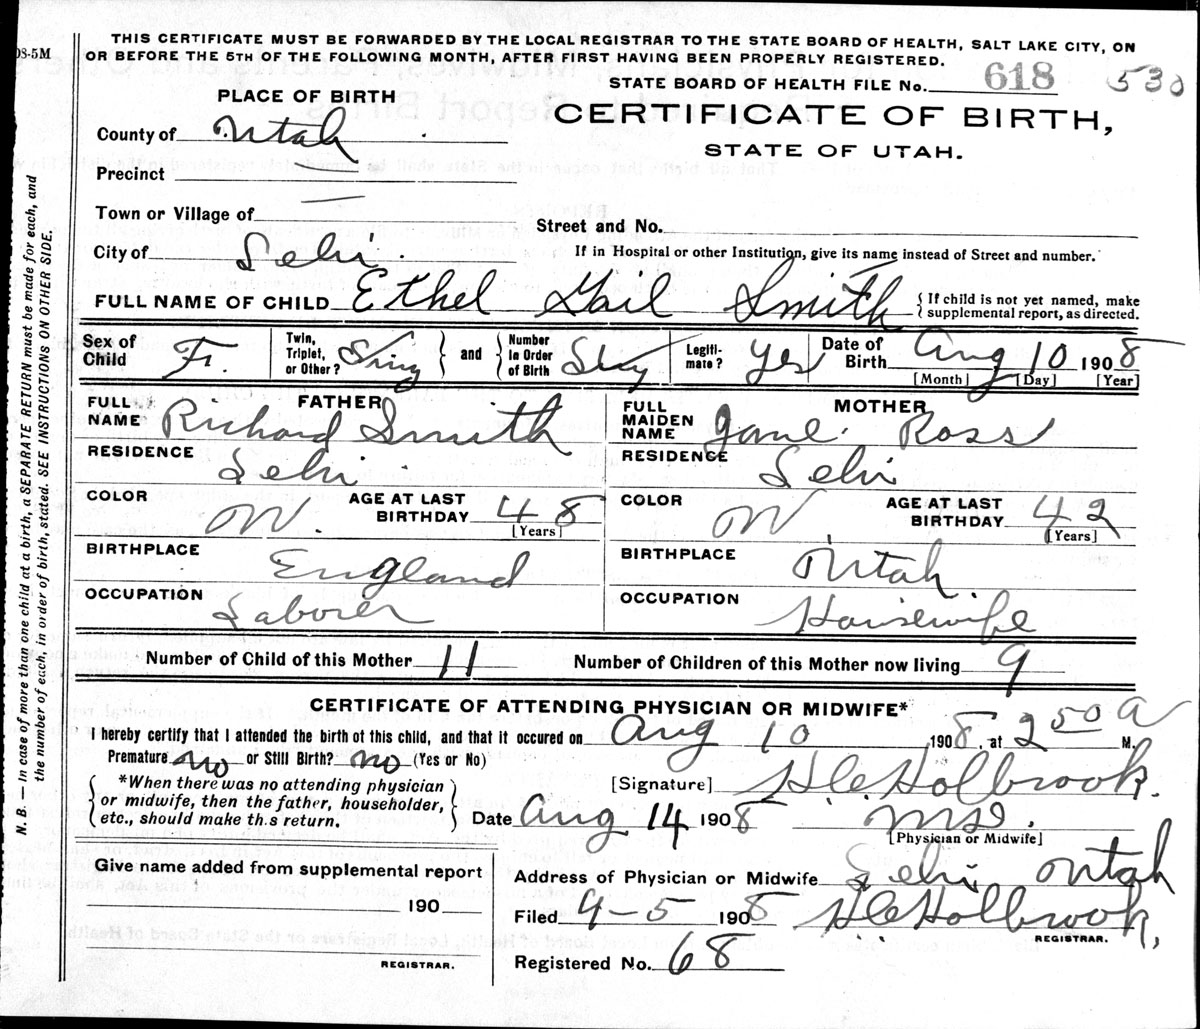 08-5M
THIS CERTIFICATE MUST BE FORWARDED BY THE LOCAL REGISTRAR TO THE STATE BOARD OF HEALTH, SALT LAKE CITY, ON
OR BEFORE THE 5TH OF THE FOLLOWING MONTH, AFTER FIRST HAVING BEEN PROPERLY REGISTERED.
STATE BOARD OF HEALTH FILE No. 618 530
PLACE OF BIRTH
CERTIFICATE OF BIRTH,
STATE OF UTAH.
County of Utah
Precinct
Town or Village of
Street and No.
City of Lehi.
If in Hospital or other Institution, give its name instead of Street and number.
FULL NAME OF CHILD Ethel Gail Smith { If child is not yet named, make
supplemental report, as directed.
Sex of Child F. Twin, Triplet, or Other? Sing } and { Number in Order of Birth Legiti- mate? Yes Date of Birth Aug 10 1908
[Month] [Day] [Year]
FATHER
FULL NAME Richard Smith
RESIDENCE Lehi.
COLOR W. AGE AT LAST BIRTHDAY 48
[Years]
BIRTHPLACE England
OCCUPATION Laborer
MOTHER
FULL MAIDEN NAME Jane Ross
RESIDENCE Lehi
COLOR W AGE AT LAST BIRTHDAY 42
[Years]
BIRTHPLACE Utah.
OCCUPATION Housewife
Number of Child of this Mother 11 Number of Children of this Mother now living 9
CERTIFICATE OF ATTENDING PHYSICIAN OR MIDWIFE*
I hereby certify that I attended the birth of this child, and that it occured on Aug 10, 1908, at 2 50 a M.
Premature no or Still Birth? no (Yes or No)
[Signature] Holbrook.
{ *When there was no attending physician
or midwife, then the father, householder,
etc., should make th.s return. }
Date Aug 14 1908
[Physician or Midwife]
Give name added from supplemental report
190
REGISTRAR.
Address of Physician or Midwife Lehi Utah
Filed 9-5 1908 Holbrook,
REGISTRAR.
Registered No. 68
N. B. — In case of more than one child at a birth, a SEPARATE RETURN must be made for each, and
the number of each, in order of birth, stated. SEE INSTRUCTIONS ON OTHER SIDE.